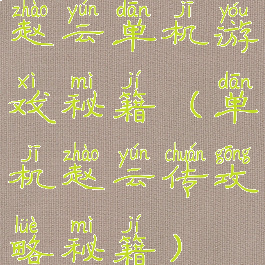 zhào yún dān jī yóu
赵云单机游
xì mì jí dān
戏秘籍(单
jī zhào yún chuán gōng
机赵云传攻
lüè mì jí
略秘籍)